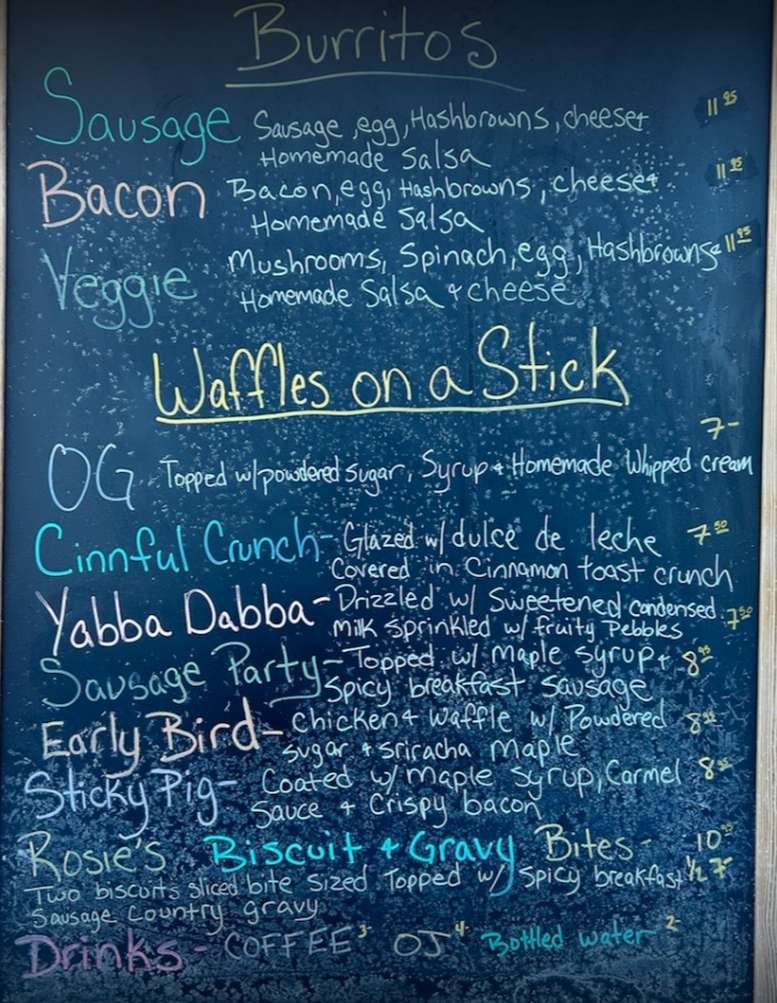 Burritos
Sausage Sausage, egg, Hashbrowns, cheese + 11 95
Homemade Salsa
Bacon Bacon, egg, Hashbrowns, cheese + 11 95
Homemade Salsa
Veggie Mushrooms, Spinach, egg, Hashbrowns 11 95
Homemade Salsa + cheese
Waffles on a Stick
7-
OG Topped w/powdered sugar, Syrup + Homemade Whipped cream
Cinnful Crunch - Glazed w/ dulce de leche 7 50
Covered in Cinnamon toast crunch
Yabba Dabba - Drizzled w/ Sweetened condensed 7 50
Milk Sprinkled w/ fruity Pebbles
Sausage Party - Topped w/ Maple Syrup + 8 95
Spicy breakfast Sausage
Early Bird - Chicken + Waffle w/ Powdered 8
Sugar + Sriracha Maple
Sticky Pig - Coated w/ Maple Syrup, Carmel 8
Sauce + Crispy bacon
Rosie's Biscuit + Gravy Bites - 10
Two biscuits sliced bite sized Topped w/ Spicy breakfast 1/2 7-
Sausage Country gravy
Drinks - COFFEE 3- OJ 4- Bottled water 2-